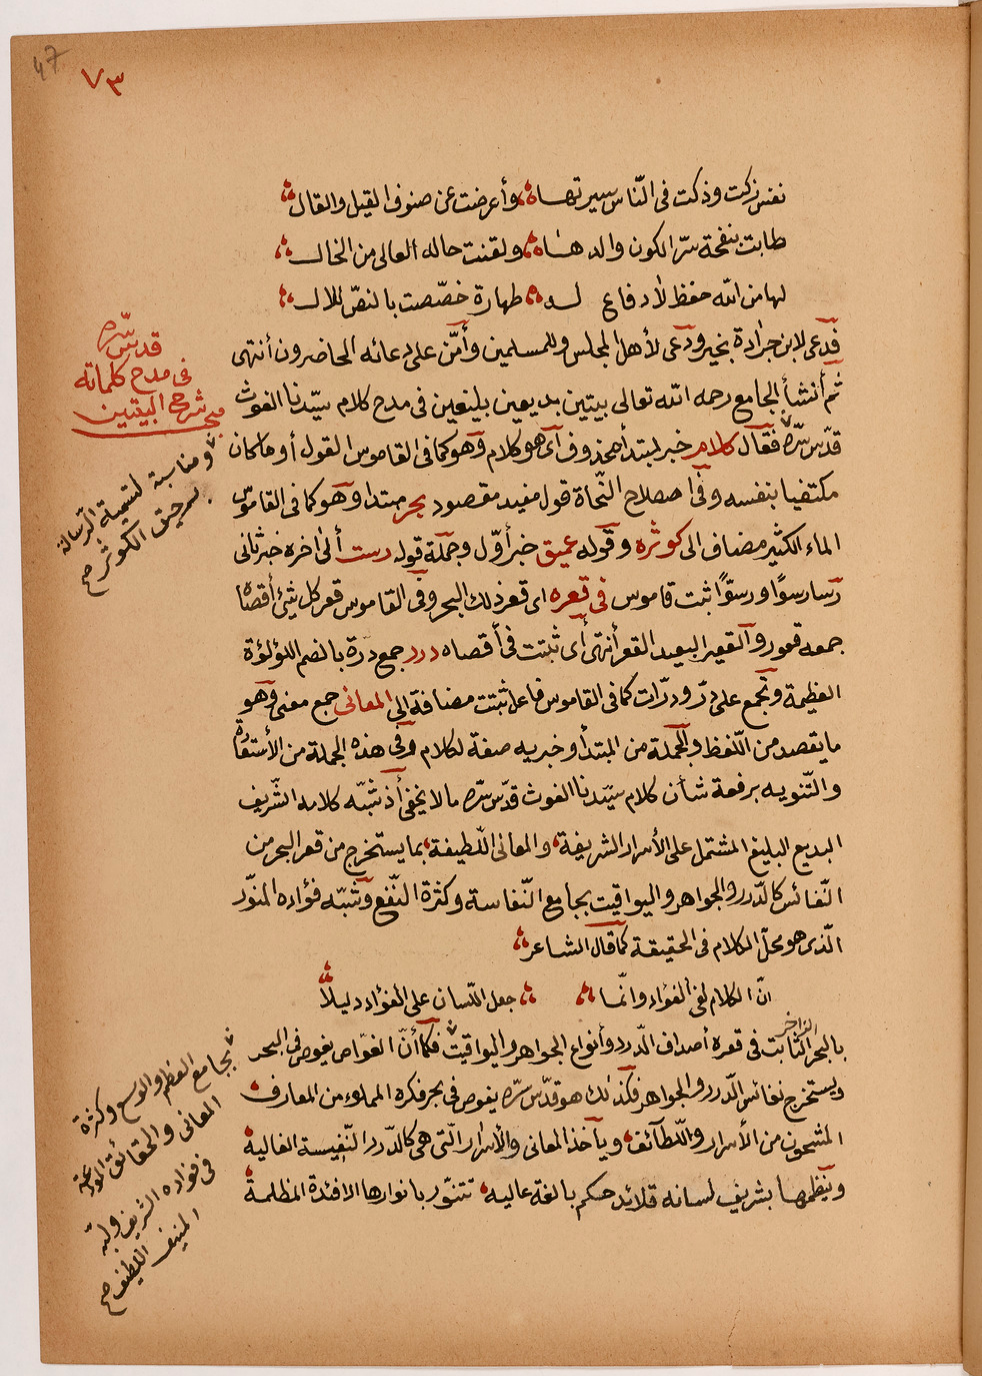 47
٧٣
نفس زكت وذكت فى النّاس سيرتها ؞ وأعرضت عن صنوف القيل والقال ؞
طابت بنفحة سرّ الكون والدها ؞ ولقنت حاله العالى من الخال ؞
لها من الله حفظ لا دفاع له ؞ طهارة خصّصت بالنصّ للال ؞
فدعى لابن جرادة بخير ودعى لأهل المجلس وللمسلمين وأمّن على دعائه الحاضرون أنتهى
ثم أنشأ الجامع رحمه الله تعالى بيتين بديعين بليغين فى مدح كلام سيّدنا الغوث
قدّس سرّه فقال كلام خبر لمبتدأ محذوف أى هو كلام وهو كما فى القاموس القول أو ما كان
مكتفيا بنفسه وفى اصطلاح النّحاة قول مفيد مقصود بحر مبتدا وهو كما فى القاموس
الماء الكثير مضاف الى كوثره وقوله عميق خبر أوّل وجملة قوله رست ألى اخره خبر ثانى
رسا رسوًا ورسوًّا ثبت قاموس فى قعره اى قعر ذلك البحر وفى القاموس قعر كل شئ أقصاه
جمعه قعور والقعير البعيد القعر أنتهى أى ثبتت فى أقصاه درر جمع درة بالضم اللؤلؤة
العظيمة وتجمع على درّ ودرّات كما فى القاموس فاعل ثبتت مضافة الى المعانى جمع معنى وهو
ما يقصد من اللّفظ والجملة من المبتدأ وخبريه صفة لكلام وفى هذه الجملة من الأستعارة
والتّنويه برفعة شأن كلام سيّدنا الغوث قدّس سرّه ما لا يخفى أذ شبّه كلامه الشّريف
البديع البليغ المشتمل على الأسرار الشريفة، والمعانى اللّطيفة، بما يستخرج من قعر البحر من
النّفائس كالدّرر والجواهر واليواقيت بجامع النّفاسة وكثرة النّفع وشبّه فؤاده المنوّر
الّذى هو محلّ الكلام فى الحقيقة كما قال الشاعر ؞
انّ الكلام لفى الفؤاد وانّما ؞ ؞ جعل اللّسان على الفؤاد دليلاً ؞
بالبحر الزاخر الثّابت فى قعره أصداف الدّرر وأنواع الجواهر واليواقيت فكما أنّ الغوّاص يغوص فى البحر
ويستخرج نفائس الدّرر والجواهر فكذلك هو قدّس سرّه يغوص فى بحر فكره المملوء من المعارف،
المشحون من الأسرار واللّطآئف، ويأخذ المعانى والأسرار الّتى هى كالدّرر النّفيسة الغالية،
وينظمها بشريف لسانه قلائد حكم بالغة عاليه، تتنوّر بانوارها الافئدة المظلمة،
قدس سرّه
فى مدح كلماته
شرح البيتين
ومناسبة لتسمية الرسالة
برحيق الكوثر صح
بجامع العظم والوسع وكثرة
المعانى والحقائق المودعة
فى فؤاده الشريف ولبّه
المنيف اللطيف صح